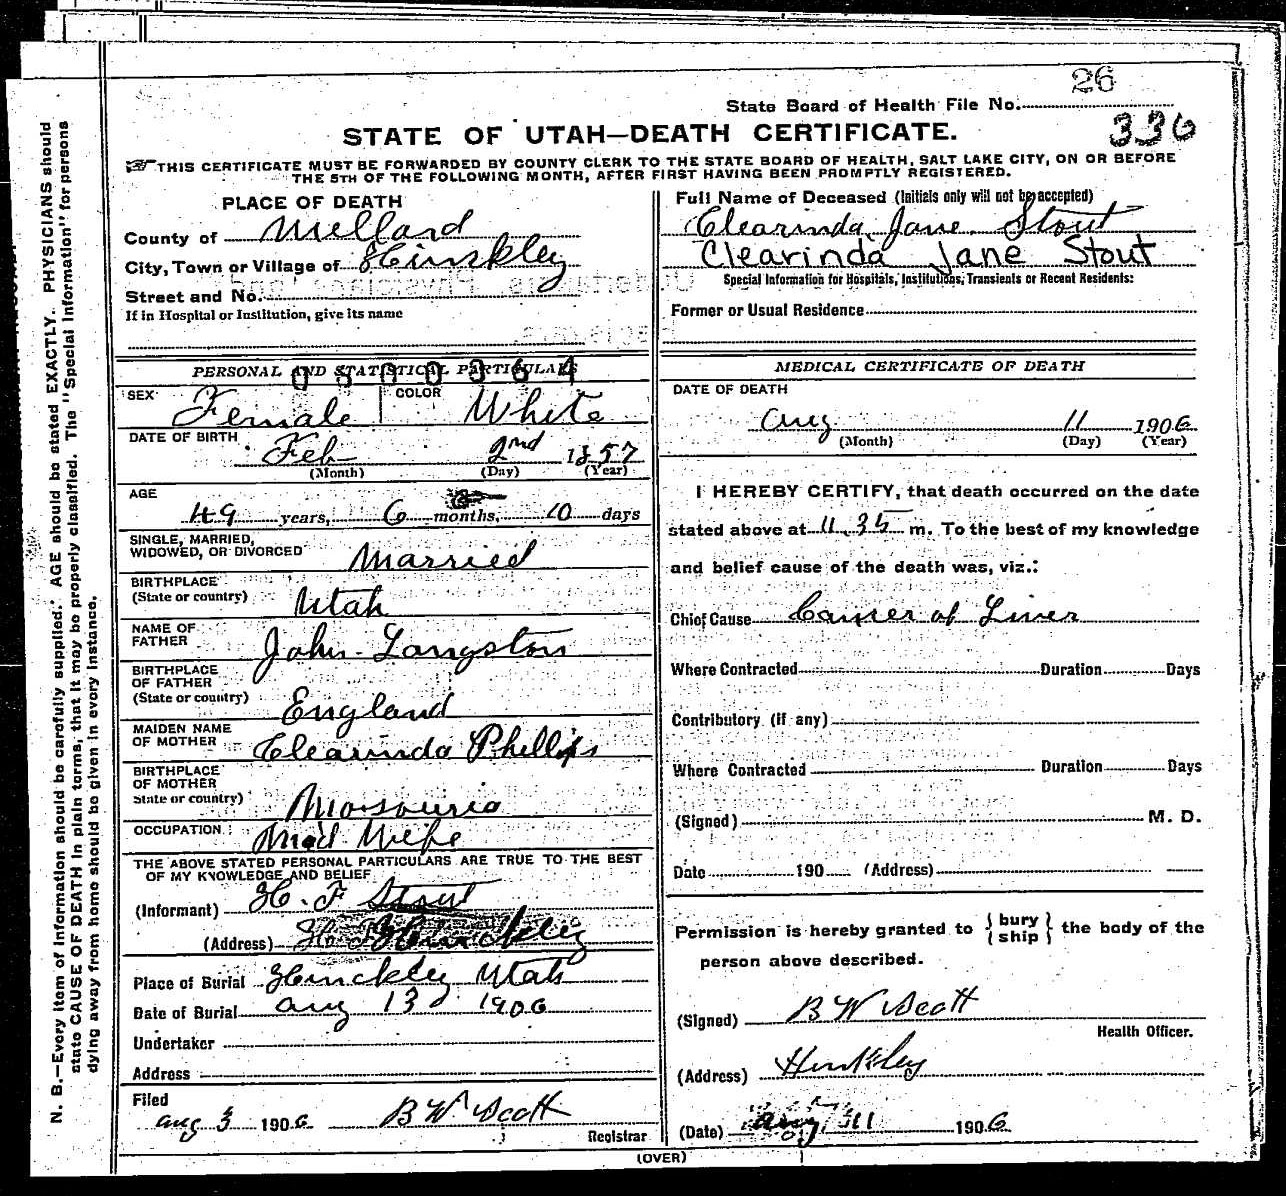 26
State Board of Health File No.
STATE OF UTAH—DEATH CERTIFICATE.
336
THIS CERTIFICATE MUST BE FORWARDED BY COUNTY CLERK TO THE STATE BOARD OF HEALTH, SALT LAKE CITY, ON OR BEFORE
THE 5TH OF THE FOLLOWING MONTH, AFTER FIRST HAVING BEEN PROMPTLY REGISTERED.
PLACE OF DEATH
County of Millard
City, Town or Village of Hinckley
Street and No.
If in Hospital or Institution, give its name
Full Name of Deceased (Initials only will not be accepted)
Clearinda Jane Stout
Clearinda Jane Stout
Special Information for Hospitals, Institutions, Transients or Recent Residents:
Former or Usual Residence
PERSONAL AND STATISTICAL PARTICULARS
0500364
SEX Female COLOR White
DATE OF BIRTH
Feb 2nd 1857
(Month) (Day) (Year)
AGE
49 years, 6 months, 10 days
SINGLE, MARRIED,
WIDOWED, OR DIVORCED Married
BIRTHPLACE
(State or country) Utah
NAME OF
FATHER John Langston
BIRTHPLACE
OF FATHER
(State or country) England
MAIDEN NAME
OF MOTHER Clearinda Phellips
BIRTHPLACE
OF MOTHER
State or country) Mossouria
OCCUPATION Mid Wife
THE ABOVE STATED PERSONAL PARTICULARS ARE TRUE TO THE BEST
OF MY KNOWLEDGE AND BELIEF
(Informant) H. F Stout
(Address) Hinckley
Place of Burial Hinckley Utah
Date of Burial Aug 13d 1906
Undertaker
Address
Filed
Aug 3 1906 B W Scott
Registrar
MEDICAL CERTIFICATE OF DEATH
DATE OF DEATH
Aug 11 1906
(Month) (Day) (Year)
I HEREBY CERTIFY, that death occurred on the date
stated above at 11.35 m. To the best of my knowledge
and belief cause of the death was, viz.:
Chief Cause Canser of Liver
Where Contracted Duration Days
Contributory (if any)
Where Contracted Duration Days
(Signed) M. D.
Date 190 (Address)
Permission is hereby granted to { bury
ship } the body of the
person above described.
(Signed) B W Scott
Health Officer.
(Address) Hinkley
(Date) Aug 11 1906
(OVER)
N. B.—Every item of information should be carefully supplied. AGE should be stated EXACTLY. PHYSICIANS should
state CAUSE OF DEATH in plain terms, that it may be properly classified. The "Special Information" for persons
dying away from home should be given in every instance.